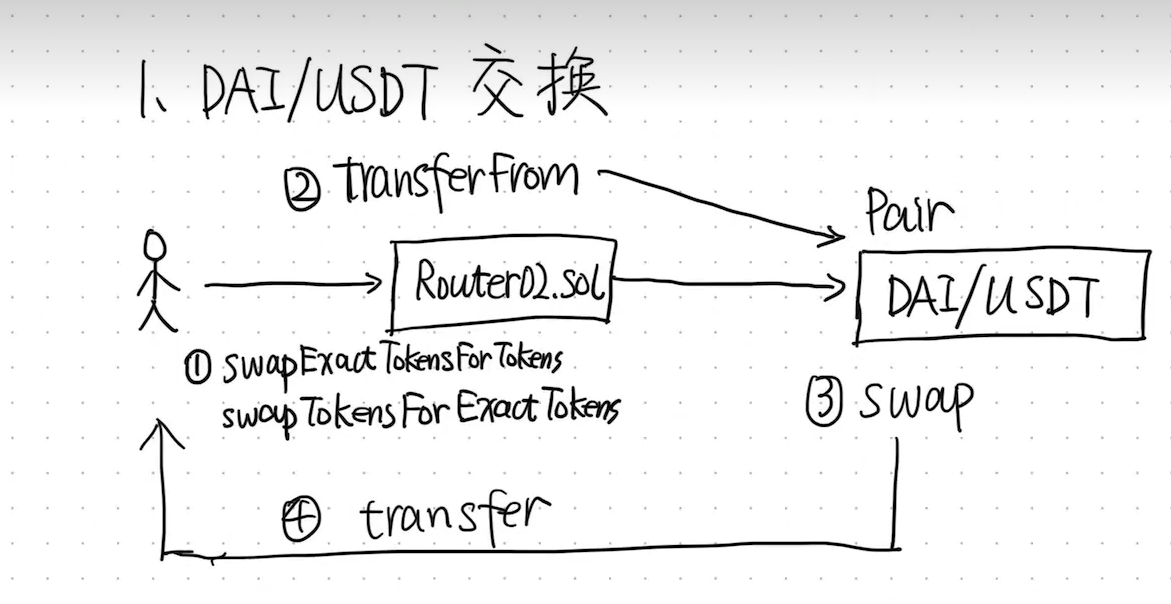 1、DAI/USDT 交換
② transferFrom
Pair
Router02.sol
DAI/USDT
① swapExactTokensForTokens
swapTokensForExactTokens
③ swap
④ transfer